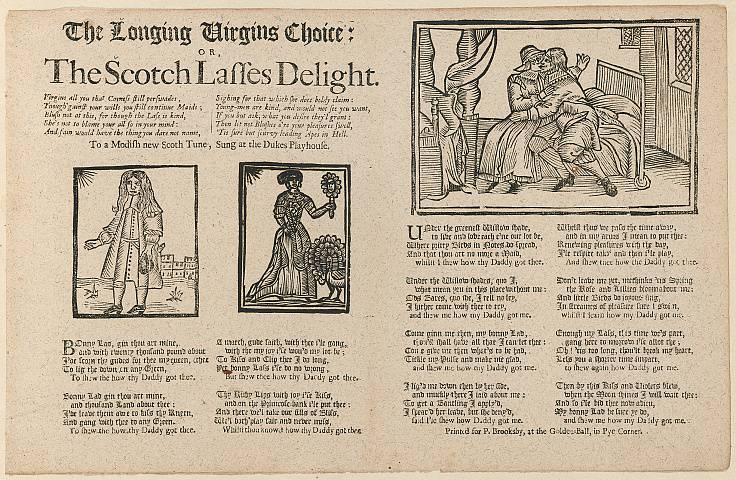 The Longing Virgins Choice:
OR,
The Scotch Lasses Delight.
Virgins all you that Counsel still perswades,
Though 'gainst your wills you still continue Maids;
Blush not at this, for though the Lass is kind,
She's not to blame your all so in your mind:
And fain would have the thing you dare not name,
Sighing for that which she does boldy claim:
Young-men are kind, and would not let you want,
If you but ask, what you desire they'l grant:
Then let not Blushes your pleasures swell,
'Tis sure but scurvy leading Apes in Hell.
To a Modish new Scoth Tune, Sung at the Dukes Playhouse.
BOnny Lad, gin thou art mine,
and with twenty thousand pound about
I'se scorn thy guides for the my queen,
To lig the down on any Green,
To shew the how thy Daddy got thee.
Bonny Lad gin thou art mine,
and thousand Land about thee:
I'se leave them awe to kiss thy Kneen,
And gang with thee to any Green.
To shew the how thy Daddy got thee.
A match, gude faith, with thee i'se gang,
with thy my joy i'se won'd my lot be;
To Kiss and Clip thee I do long,
bonny Lass i'se do no wrong,
But shew thee how thy Daddy got thee.
Thy Ruby Lips with joy i'se kiss,
and on the Primrose bank i'se put thee:
And there we'l take our fills of Bliss,
We'l both play fair and never miss,
Whilst thou know'st how thy Daddy got thee.
UNder the greenest Willow shade,
to live and love each i'ne our lot be,
Where pritty Birds in Notes do spread,
And that thou art no more a Maid,
whilst I shew how thy Daddy got thee.
Under the Willow-shades, quo J,
what mean you in this place without me:
Ods Bares, quo she, I tell no ley,
I hither come with thee to try,
and shew me how my Daddy got me.
Come ginn me then, my bonny Lad,
thou'st shall have all that I can let thee:
Con e give me then what's to be had,
Tickle my Pulse and make me glad,
and shew me how my Daddy got me.
I lig'd me down then by her side,
and muckly there I left about me:
To get a Bantling I apply'd,
I spear'd her leave, but she deny'd,
said I'se shew how my Daddy got me.
Whilst thus we pass the time away,
and in my arms I mean to put thee:
Renewing pleasures with the day,
I'se respite take and then i'se play,
And shew thee how the Daddy got thee.
Don't leave me yet, methinks 'tis Spring
the Rose and Lillies bloom about me:
And little Birds do joyous sing,
In streams of pleasure sure I swim,
whilst I learn how my Daddy got me.
Enough my Lass, 'tis time we's part,
gang here to morrow i'se allot the;
Oh! 'tis too long, thou't break my heart,
Lets you a shorter time impart,
to shew again how Daddy got me.
Then by this Kiss and Violets blew,
when the Moon shines I will wait thee:
And so i'se bid thee now adieu,
My bonny Lad be sure ye do,
and shew me how my Daddy got me.
Printed for P. Brooksby, at the Golden-Ball, in Pye Corner.